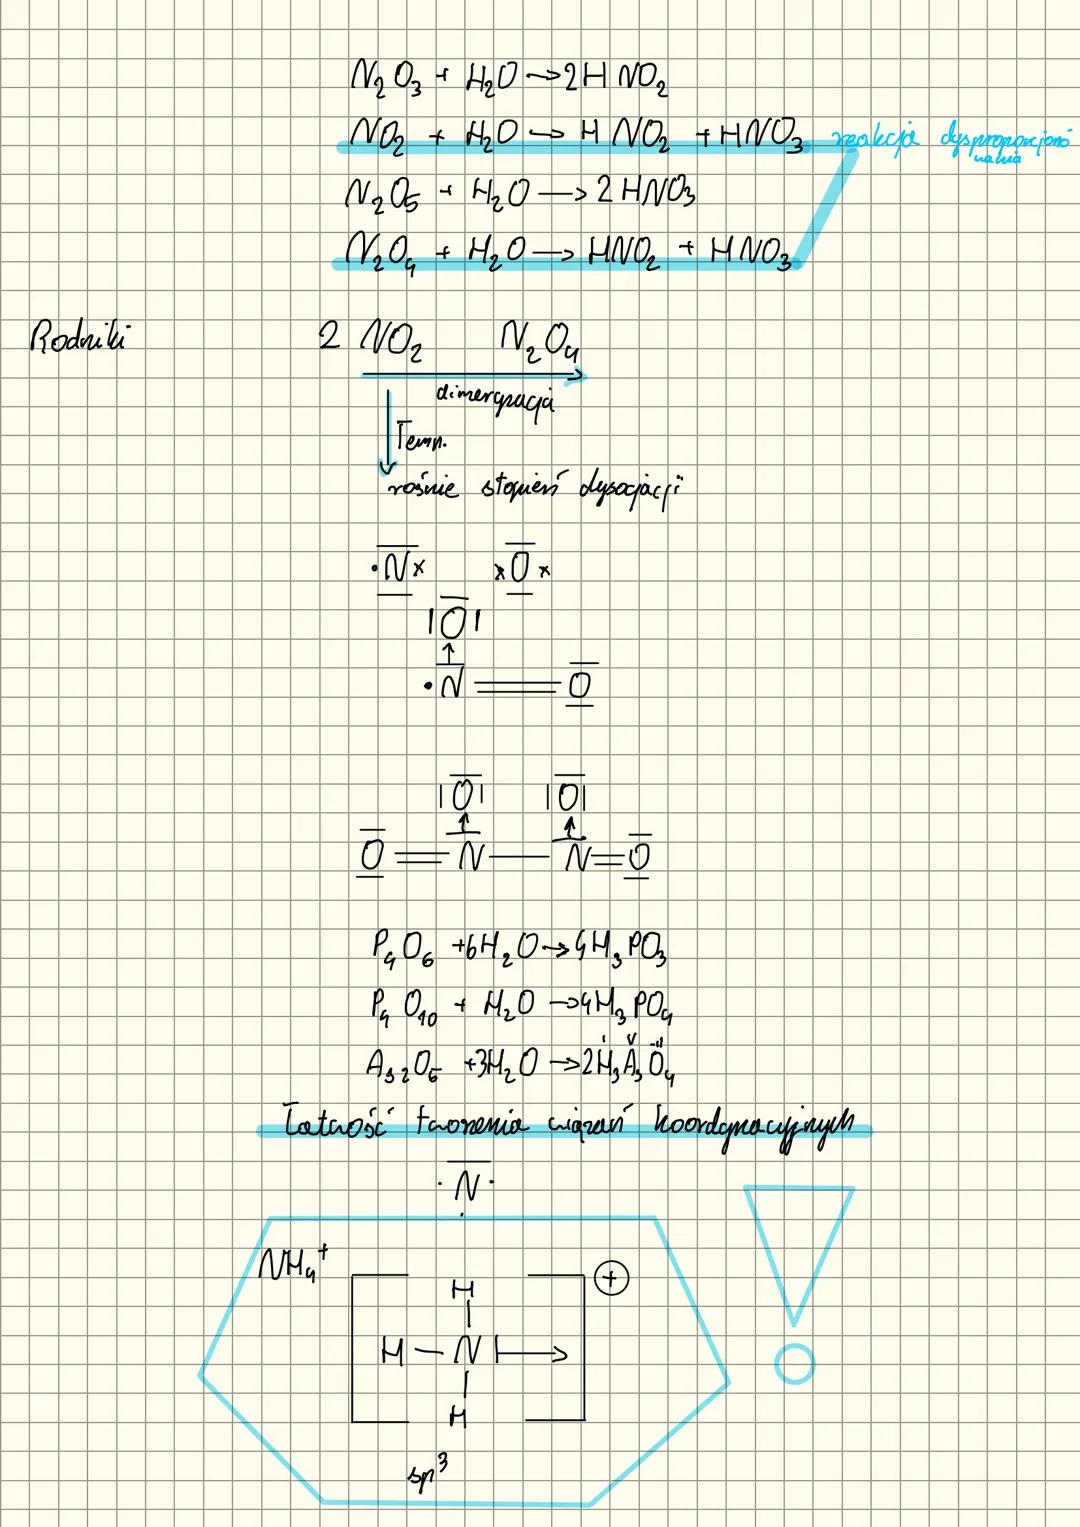 N₂O₃ + H₂O → 2HNO₂
NO₂ + H₂O → HNO₂ + HNO₃ reakcja dysproporcjono
wania
N₂O₅ + H₂O → 2HNO₃
N₂O₄ + H₂O → HNO₂ + HNO₃
Rodniki 2 NO₂ N₂O₄
dimeryzacja
Temp.
rośnie stopień dysocjacji
·N× ×O×
|O|
↑
·N = O
|O| |O|
↑ ↑
O = N — N = O
P₄O₆ + 6H₂O → 4H₃PO₃
P₄O₁₀ + H₂O → 4H₃PO₄
I V -II
As₂O₅ + 3H₂O → 2H₃AsO₄
Łatwość tworzenia wiązań koordynacyjnych
·N·
NH₄⁺
H +
H — N →
H
sp³